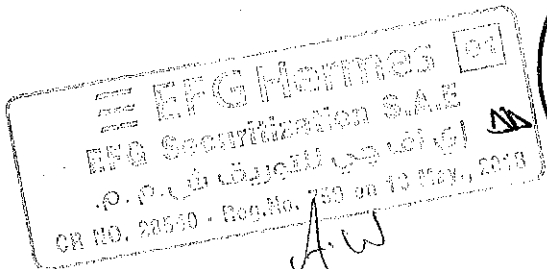 EFG Hermes 01
EFG Securitization S.A.E
إي إف جي للتوريق ش.م.م.
CR NO. 28540 - Reg.No. 759 on 13 May., 2018
A.W